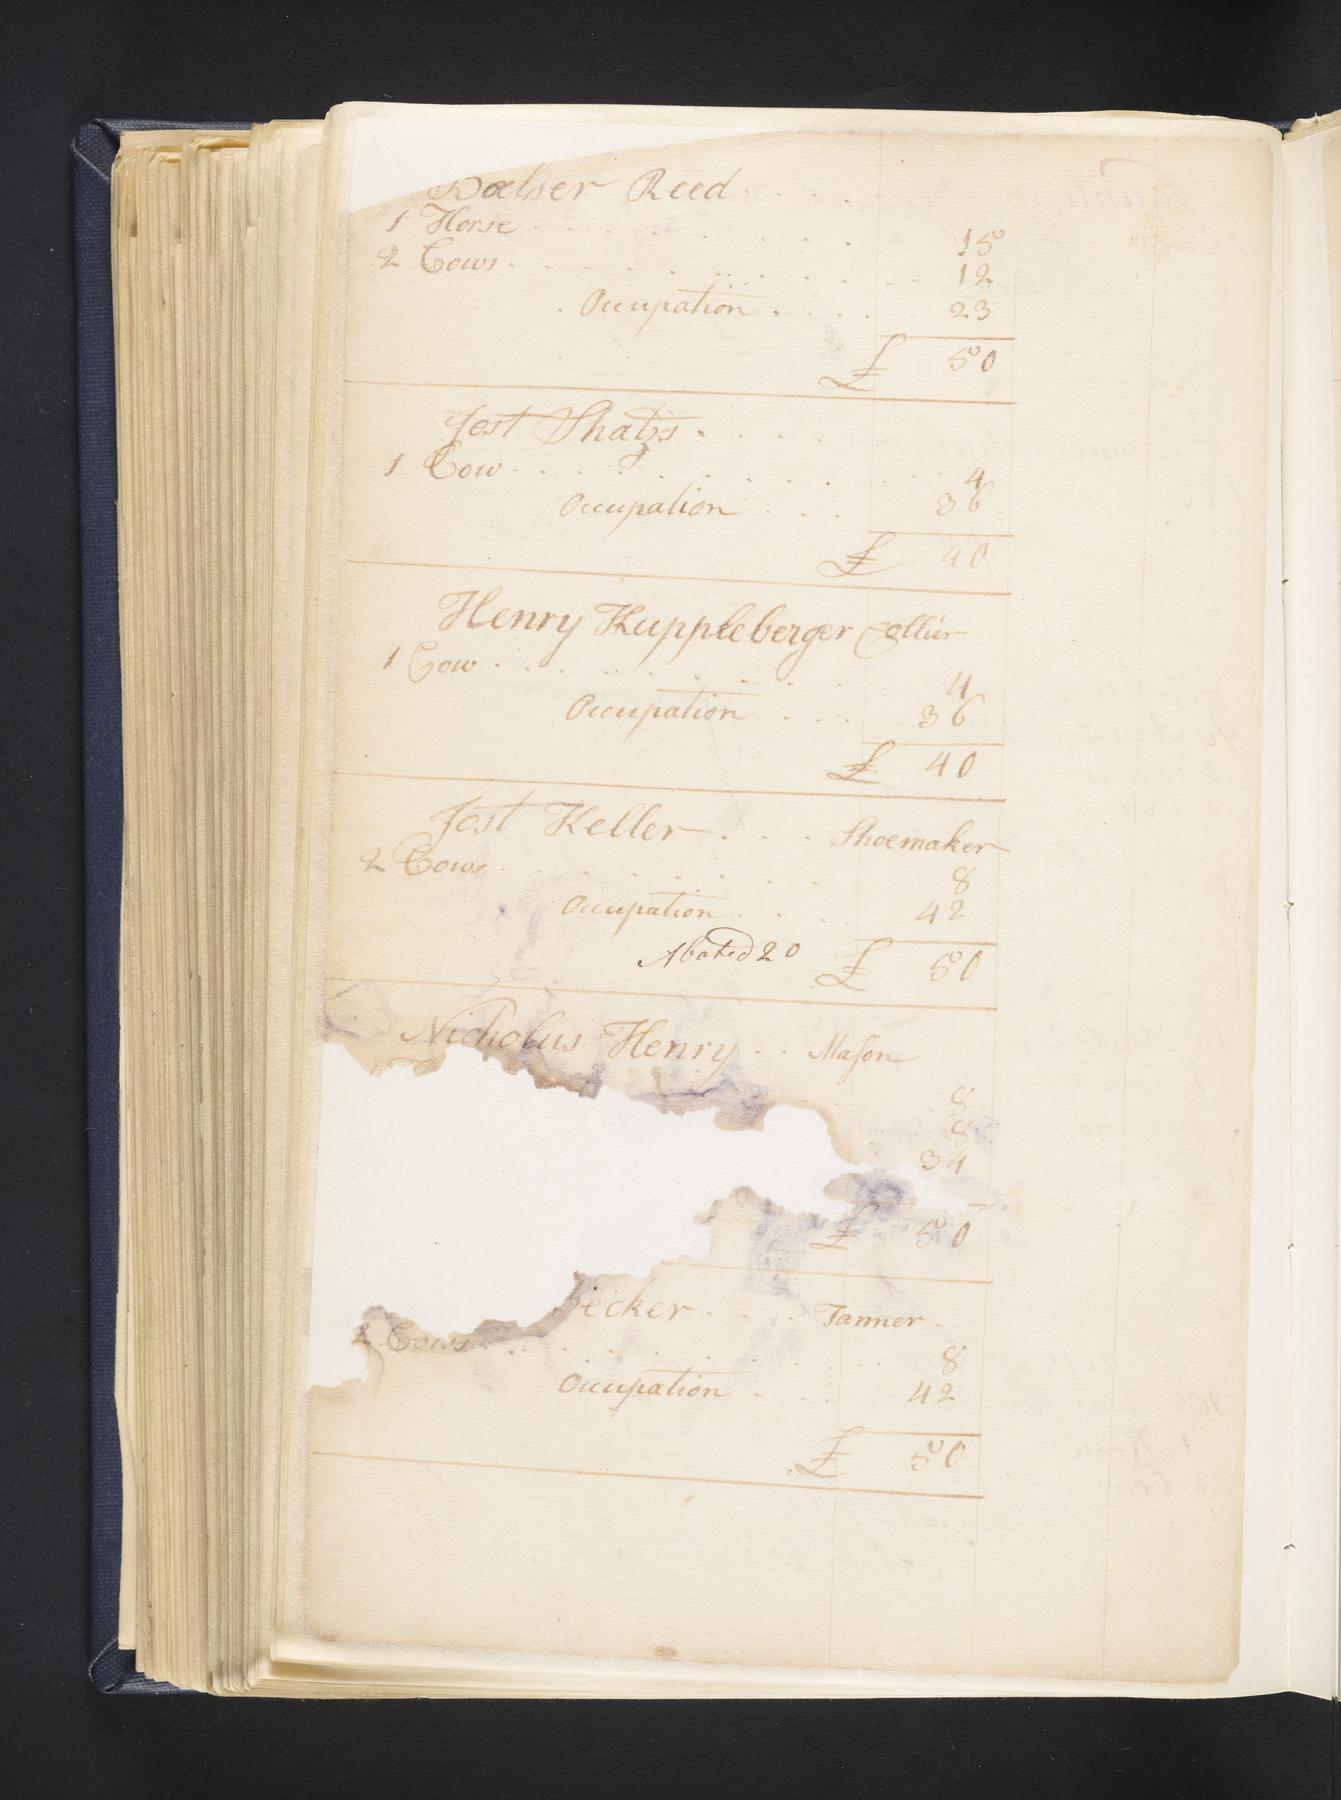 Balser Reed
1 Horse 15
2 Cows 12
Occupation 23
£ 50
Jost Shatzs
1 Cow 4
Occupation 36
£ 40
Henry Kuppleberger Collier
1 Cow 4
Occupation 36
£ 40
Jost Keller Shoemaker
2 Cows 8
Occupation 42
Abated 20 £ 50
Nicholus Henry Mason
8
8
34
£ 50
ecker Tanner
2 Cows 8
Occupation 42
£ 50